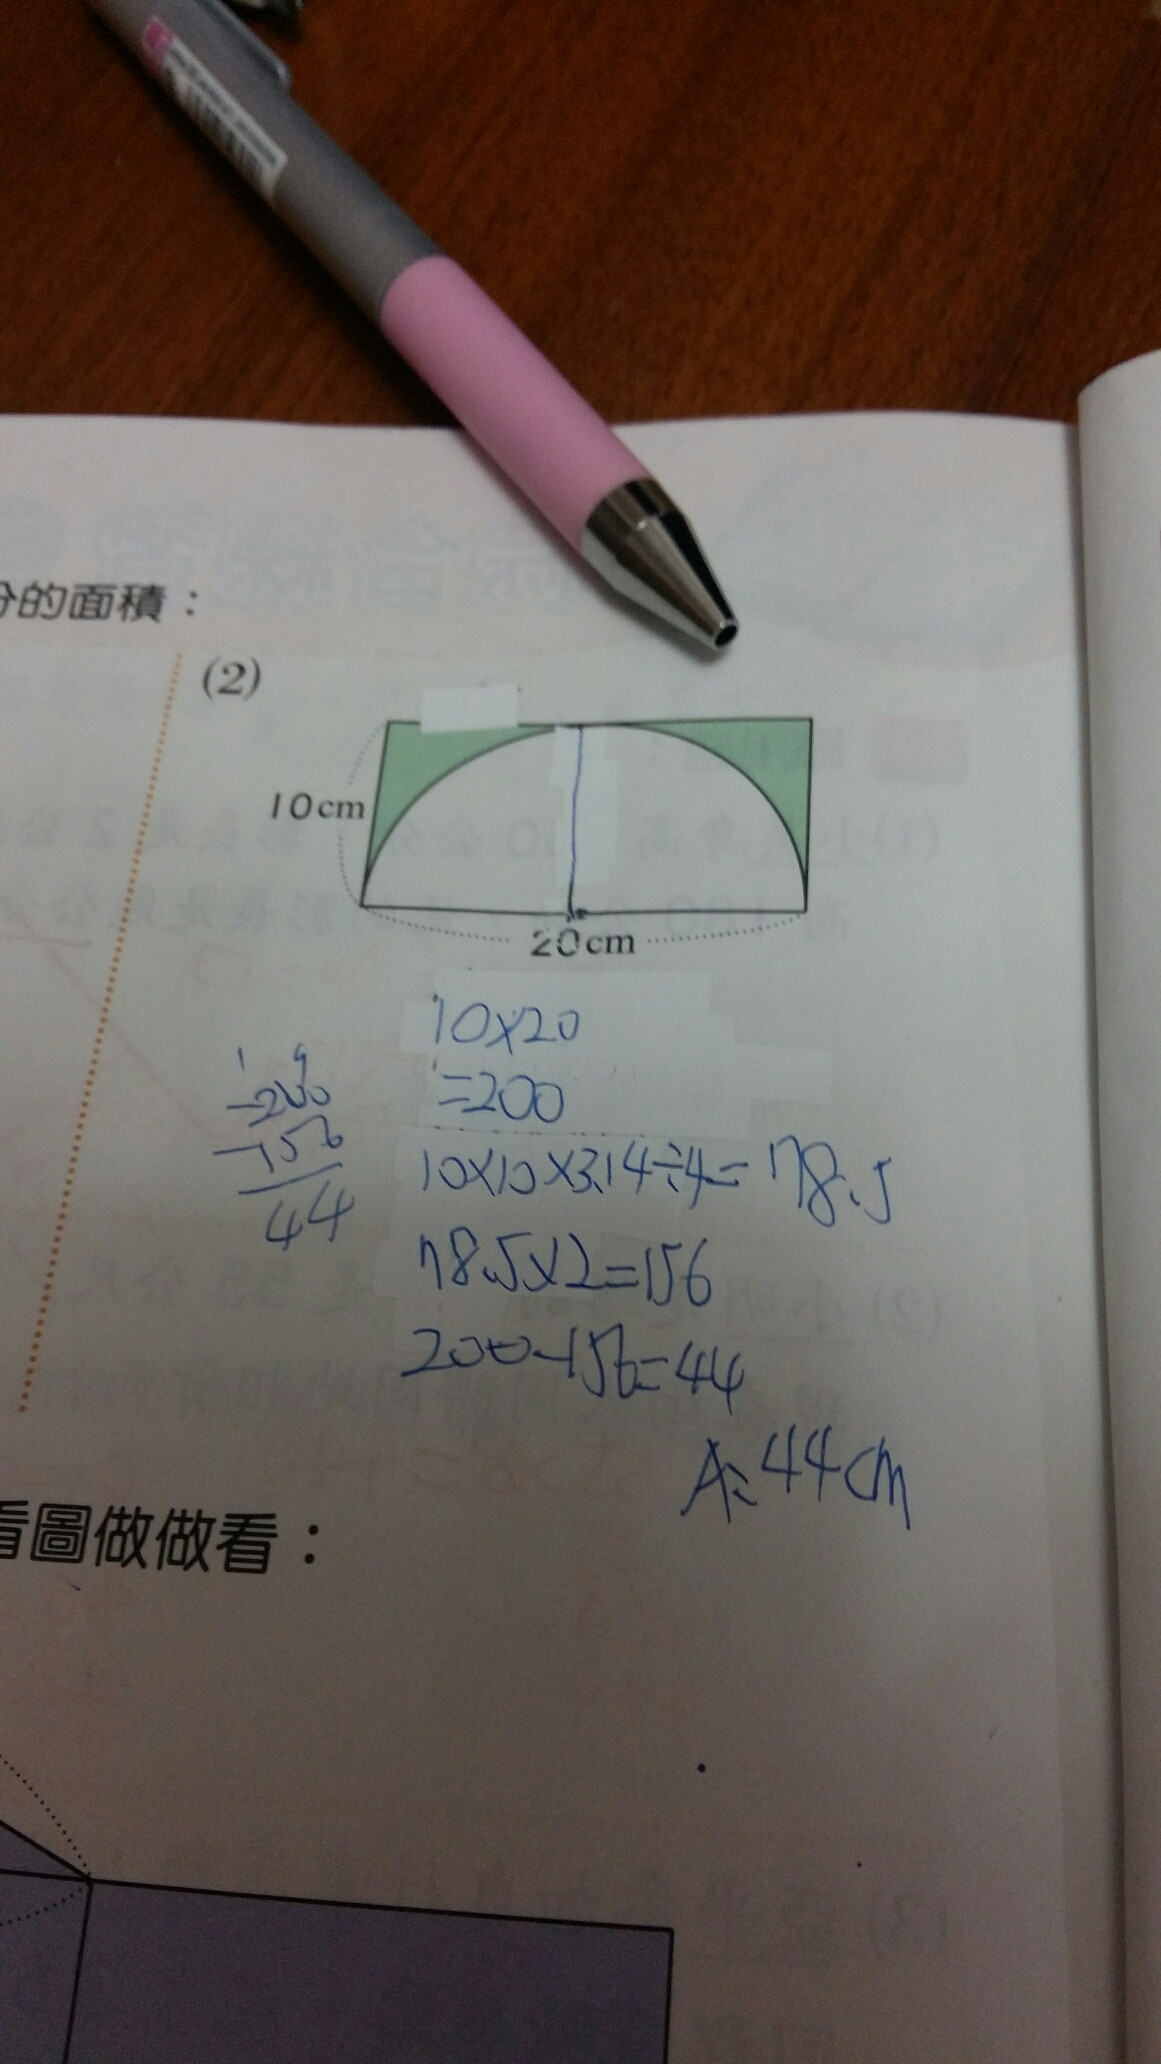 分的面積：
(2)
10cm
20cm
10×20
=200
10×10×3.14÷4=78.5
78.5×2=156
200-156=44
A:44cm
200
-156
44
看圖做做看：